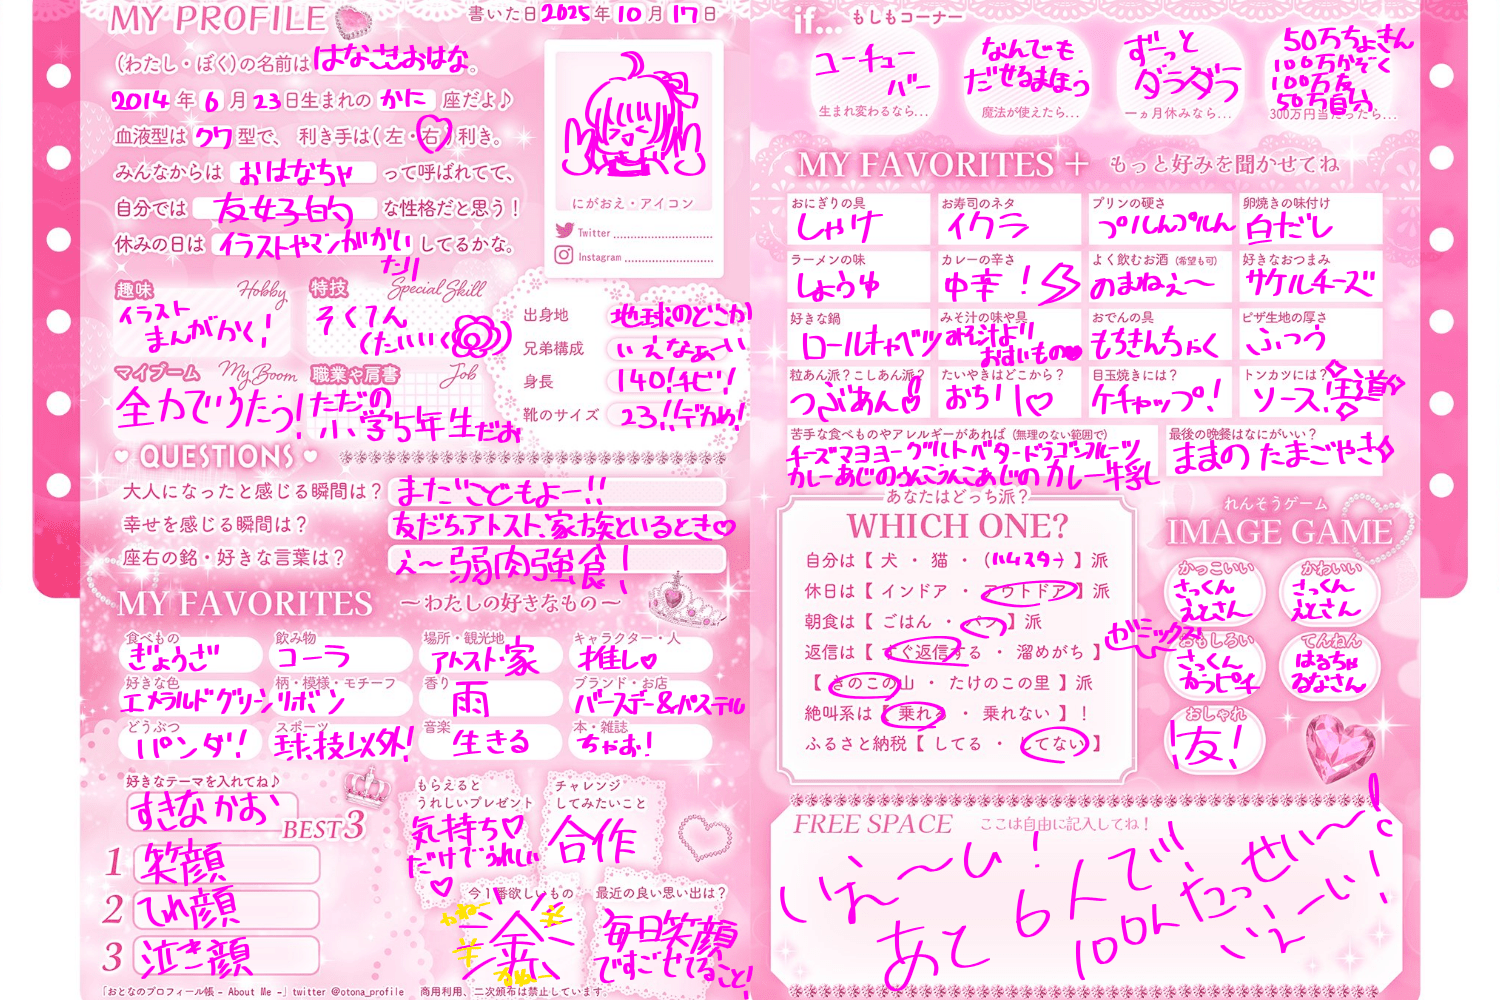 MY PROFILE
書いた日2025年 10月 17日
(わたし・ぼく)の名前ははなさきおはな。
2014年 6月 23日生まれの かに 座だよ♪
血液型は クワ 型で、 利き手は( 左・右 )利き。
みんなからは おはなちゃ って呼ばれてて、
自分では 友好的 な性格だと思う!
休みの日は イラストやマンガかい してるかな。
たり
にがおえ・アイコン
Twitter
Instagram
趣味 Hobby
イラスト
まんがかく!
特技 Special Skill
そくてん
くたいいく
マイブーム My Boom
全力でいうたう!
職業や肩書 Job
ただの
小学5年生だお
出身地 地球のどこか
兄弟構成 いえなぁーい
身長 140!チビ!
靴のサイズ 23!!デカめ!
QUESTIONS
大人になったと感じる瞬間は? まだこどもよー!!
幸せを感じる瞬間は? 友だち、アトスト、家族といるとき♡
座右の銘・好きな言葉は? え〜弱肉強食!
MY FAVORITES 〜わたしの好きなもの〜
食べもの ぎょうざ
飲み物 コーラ
場所・観光地 アトスト・家
キャラクター・人 推し♡
好きな色 エメラルドグリーン
柄・模様・モチーフ リボン
香り 雨
ブランド・お店 バースデー&パステル
どうぶつ パンダ!
スポーツ 球技以外!
音楽 生きる
本・雑誌 ちゃお!
好きなテーマを入れてね♪
すきなかお
BEST3
1 笑顔
2 てれ顔
3 泣き顔
もらえると
うれしいプレゼント
気持ち♡
だけでうれしい
♡
チャレンジ
してみたいこと
合作
今1番欲しいもの
金
最近の良い思い出は?
毎日笑顔
ですごせてること!
「おとなのプロフィール帳 - About Me -」twitter @otona_profile 商用利用、二次頒布は禁止しています。
if... もしもコーナー
ユーチュー
バー
生まれ変わるなら...
なんでも
だせるまほう
魔法が使えたら...
ずーっと
ダラダラ
一ヵ月休みなら...
50万ちょきん
100万かぞく
100万友
50万自分
300万円当たったら...
MY FAVORITES + もっと好みを聞かせてね
おにぎりの具 しゃけ
お寿司のネタ イクラ
プリンの硬さ プルんプルん
卵焼きの味付け 白だし
ラーメンの味 しょうゆ
カレーの辛さ 中辛!
よく飲むお酒(希望も可) のまねぇ〜
好きなおつまみ サケルチーズ
好きな鍋 ロールキャベツ
みそ汁の味や具 みそ汁より
おすいもの♥
おでんの具 もちきんちゃく
ピザ生地の厚さ ふっう
粒あん派?こしあん派? つぶあん
たいやきはどこから? おちり♡
目玉焼きには? ケチャップ!
トンカツには? ソース!王道
苦手な食べものやアレルギーがあれば(無理のない範囲で)
チーズマヨヨーグルトバタードラゴンフルーツ
カレーあじのうんこうんこあじのカレー牛乳
最後の晩餐はなにがいい?
ままの たまごやき
あなたはどっち派?
WHICH ONE?
自分は【 犬 ・ 猫 ・ (ハムスター) 】派
休日は【 インドア ・ アウトドア 】派
朝食は【 ごはん ・ パン 】派
返信は【 すぐ返信する ・ 溜めがち 】
ガミックス!
【 きのこの山 ・ たけのこの里 】派
絶叫系は【 乗れる ・ 乗れない 】!
ふるさと納税【 してる ・ してない 】
れんそうゲーム
IMAGE GAME
かっこいい
さっくん
えとさん
かわいい
さっくん
えとさん
おもしろい
さっくん
かつピチ
てんねん
はるちゃ
るなさん
おしゃれ
!友!
FREE SPACE ここは自由に記入してね!
いえ〜い!
あと 6人で!
100人たっせい〜!
いえーい!